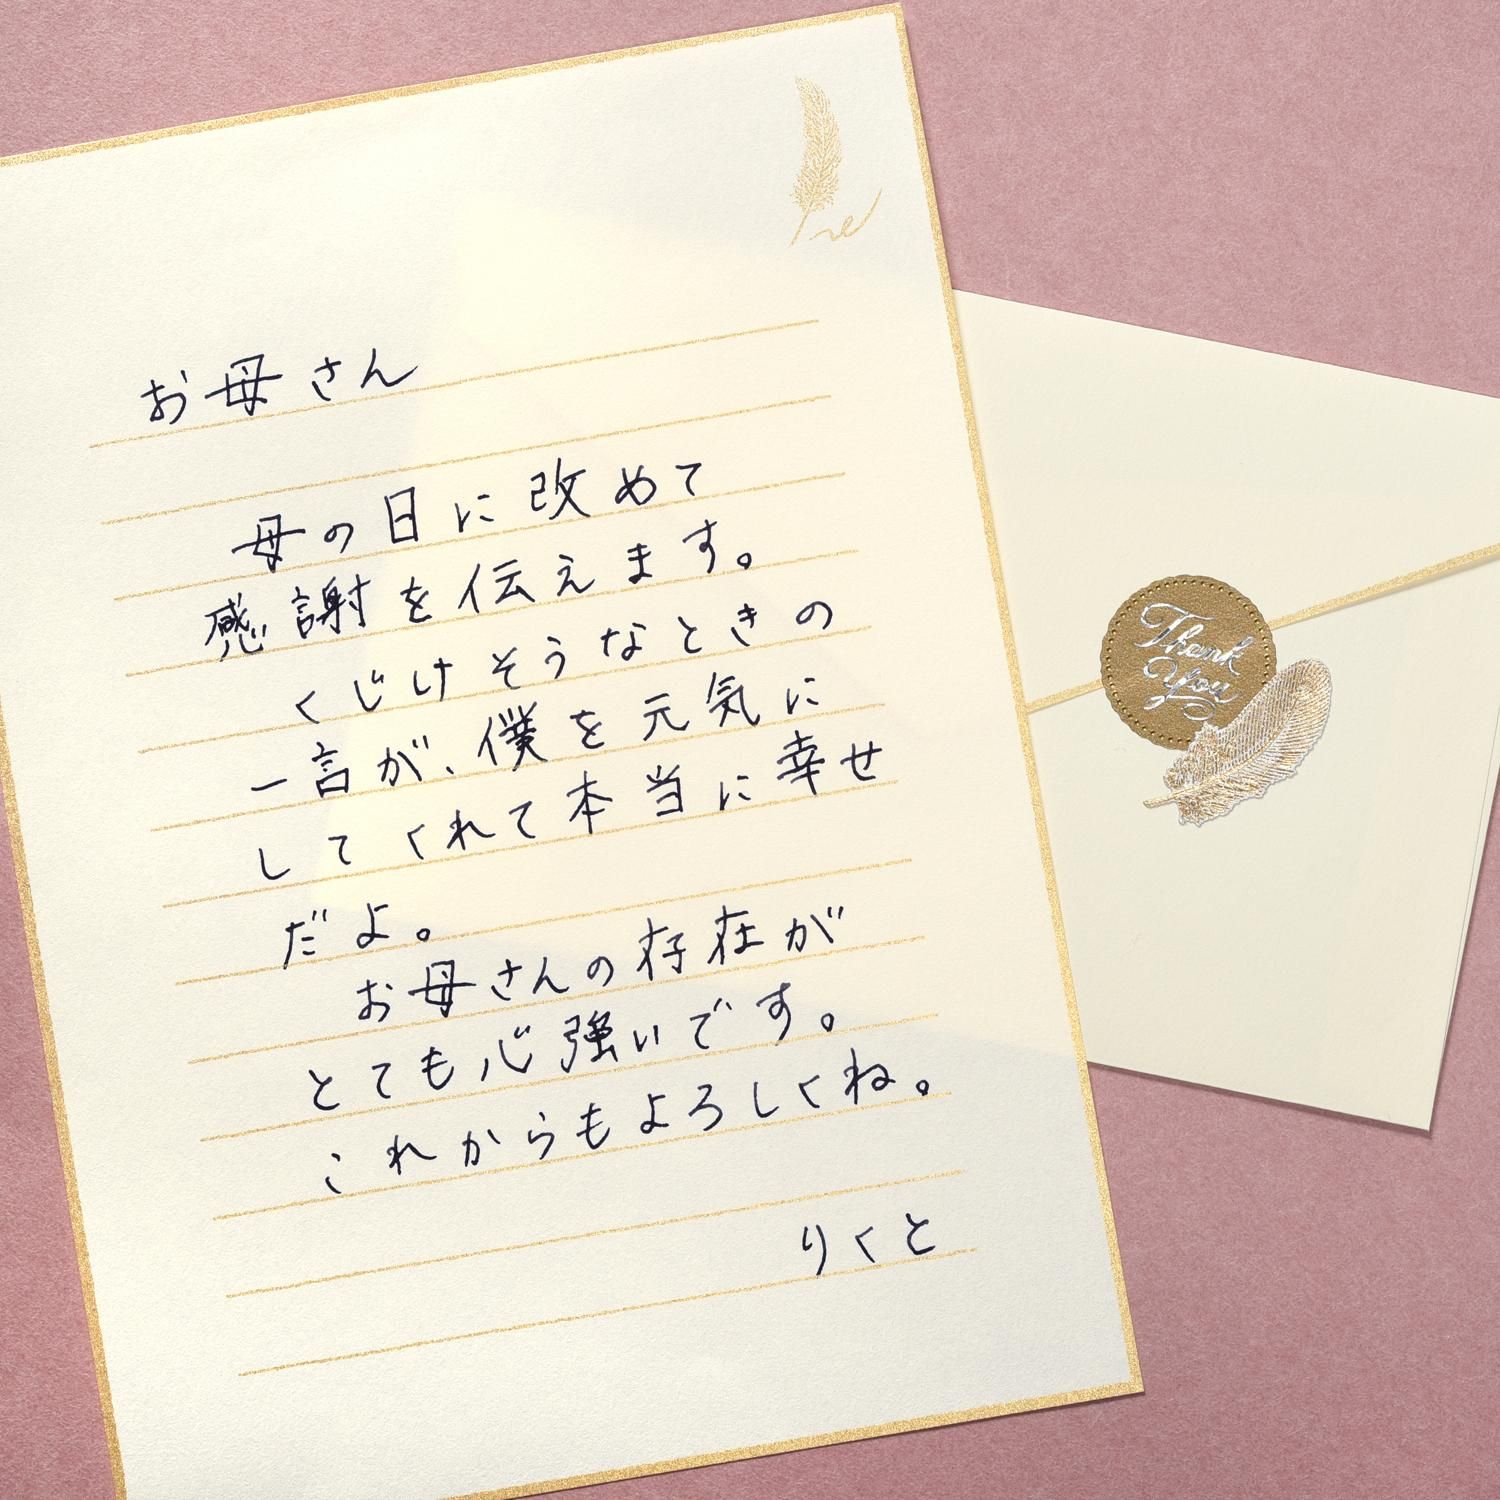 お母さん
母の日に改めて
感謝を伝えます。
くじけそうなときの
一言が、僕を元気に
してくれて本当に幸せ
だよ。
お母さんの存在が
とても心強いです。
これからもよろしくね。
りくと
Thank
You